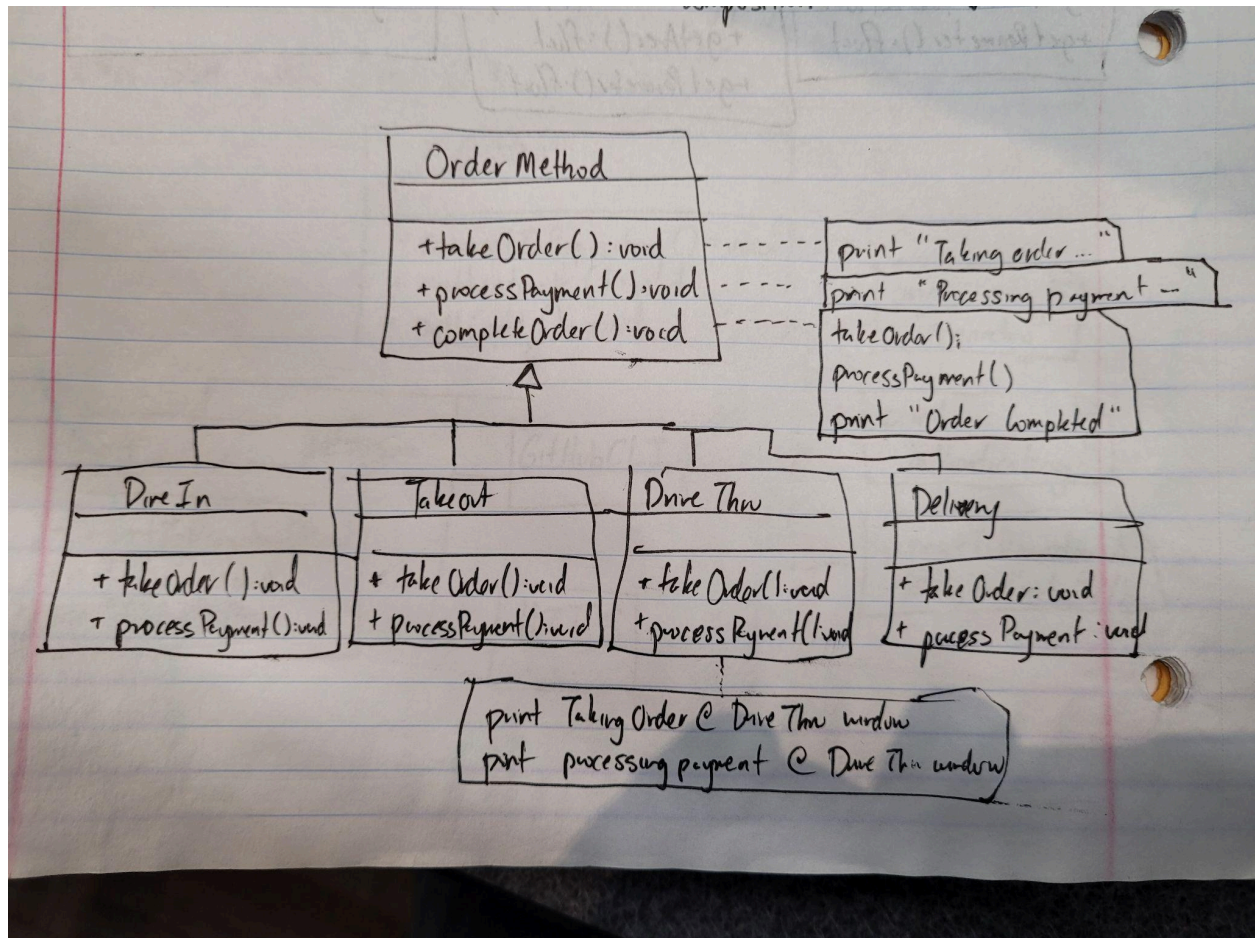 Order Method
+takeOrder() : void
+processPayment() : void
+completeOrder() : void
print "Taking order ..."
print "Processing payment ..."
takeOrder();
processPayment()
print "Order Completed"
Dine In
+ takeOrder() : void
+ processPayment() : void
Takeout
+ takeOrder() : void
+ processPayment() : void
Drive Thru
+ takeOrder() : void
+ processPayment() : void
Delivery
+ takeOrder : void
+ process Payment : void
print Taking Order @ Drive Thru window
print processing payment @ Drive Thru window